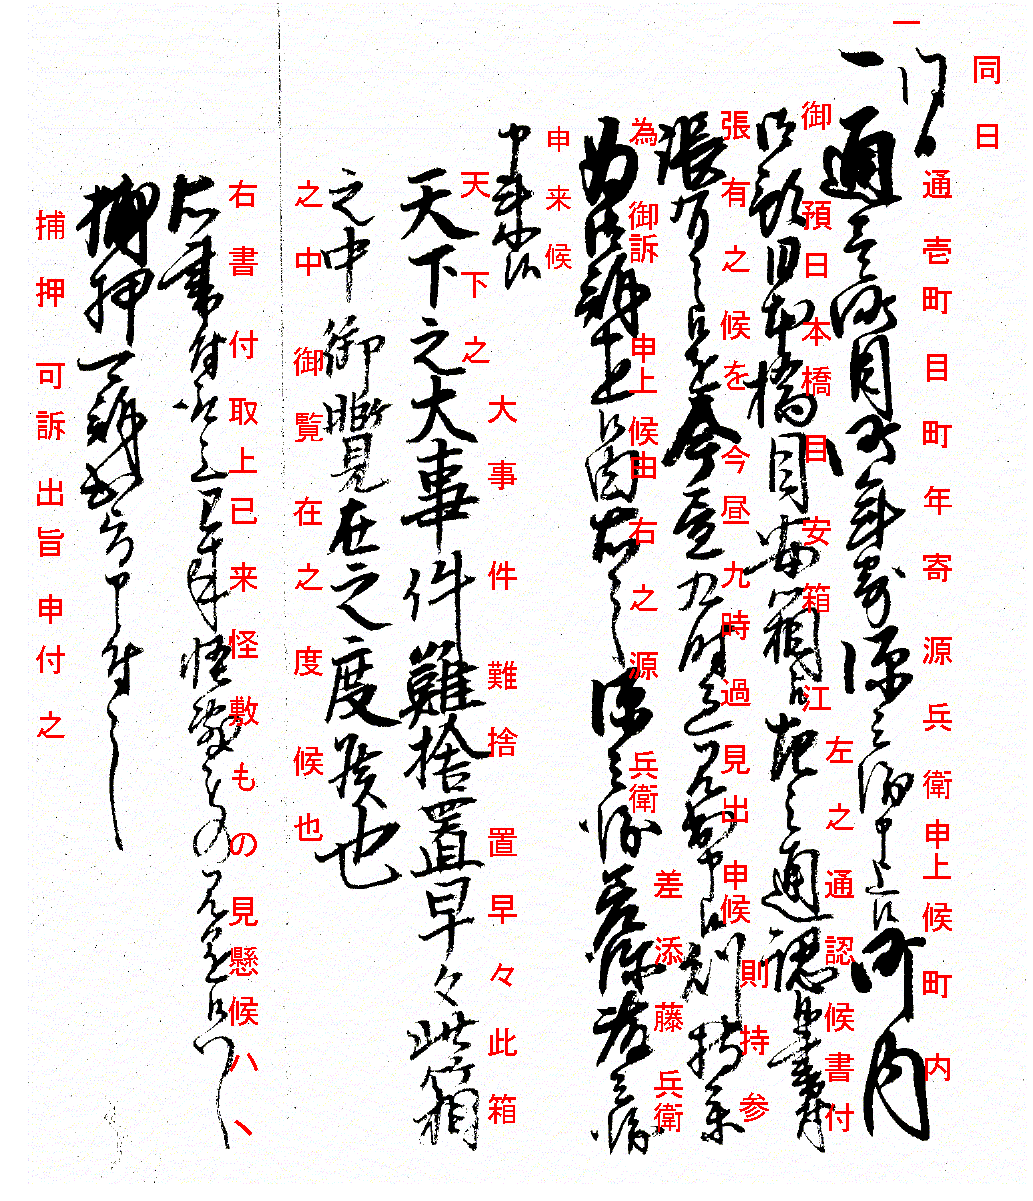 同日
一 通壱町目町年寄源兵衛申上候町内
御預日本橋目安箱江左之通認候書付
張有之候を今昼九時過見出申候則持参
為御訴申上候由右之源兵衛差添藤兵衛
申来候
天下之大事件難捨置早々此箱
之中御覧在之度候也
右書付取上已来怪敷もの見懸候ハヽ
捕押可訴出旨申付之